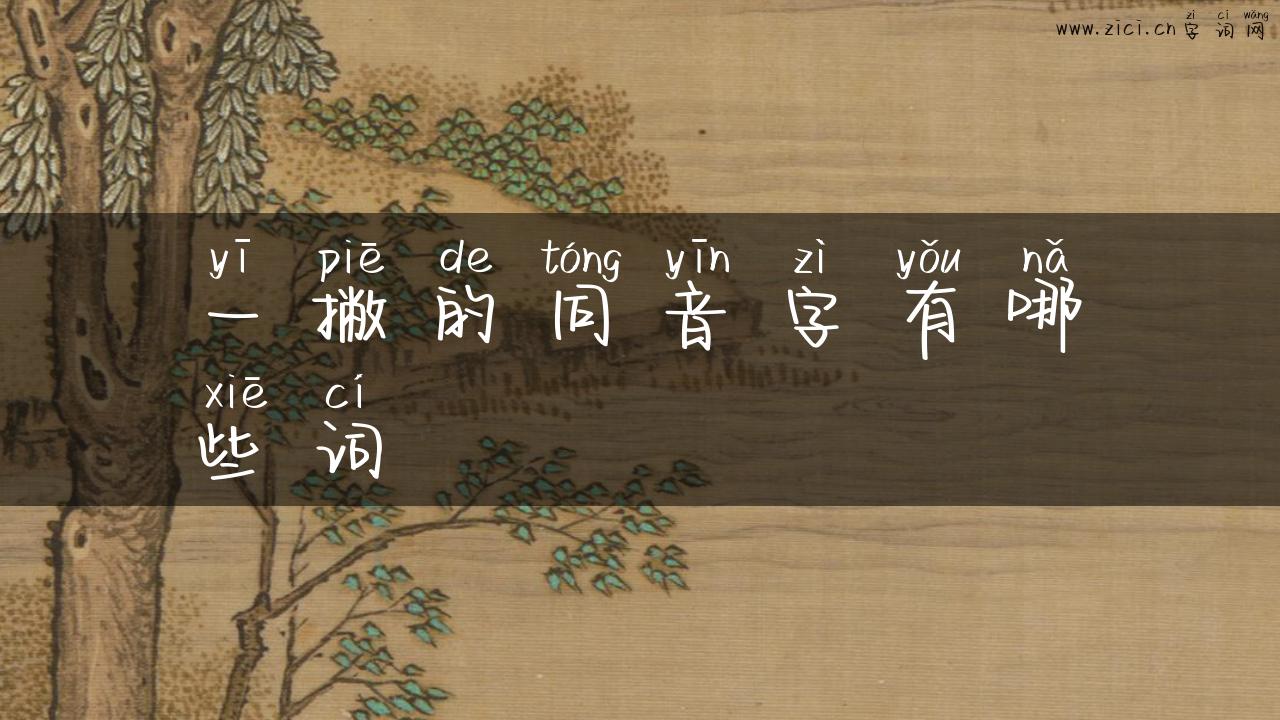 zì cí wǎng
www.zici.cn 字词网
yī piē de tóng yīn zì yǒu nǎ
一撇的同音字有哪
xiē cí
些词